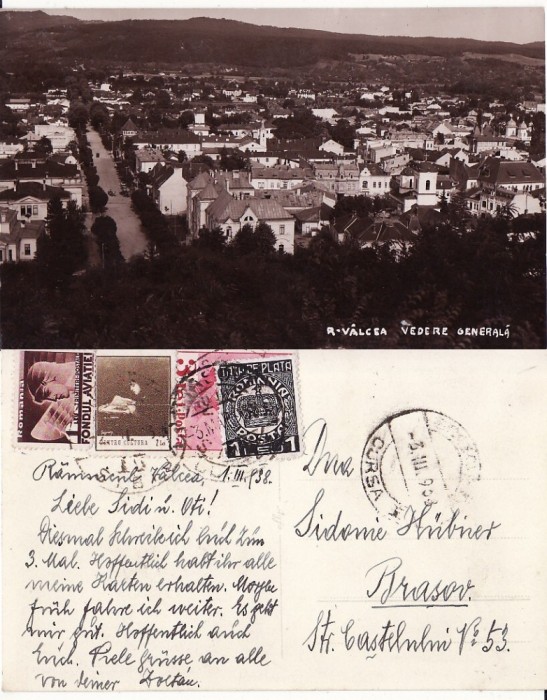 R-VÂLCEA VEDERE GENERALĂ
România
FONDUL AVIAȚIEI
TAXA DE PLATA
ROMANIA
POSTA
1 1
CURSA
-3.III.938
Râmnicul Vâlcea, 1.III.938.
Liebe Sidi u. Oti!
Diesmal schreibe ich Euch zum
3. Mal. Hoffentlich habt ihr alle
meine Karten erhalten. Morgen
früh fahre ich weiter. Es geht
mir gut. Hoffentlich auch
Euch. Viele grüsse, an alle
von deiner Zoltan.
Dna
Sidonie Hübner
Brasov.
Str. Castelului No 53.